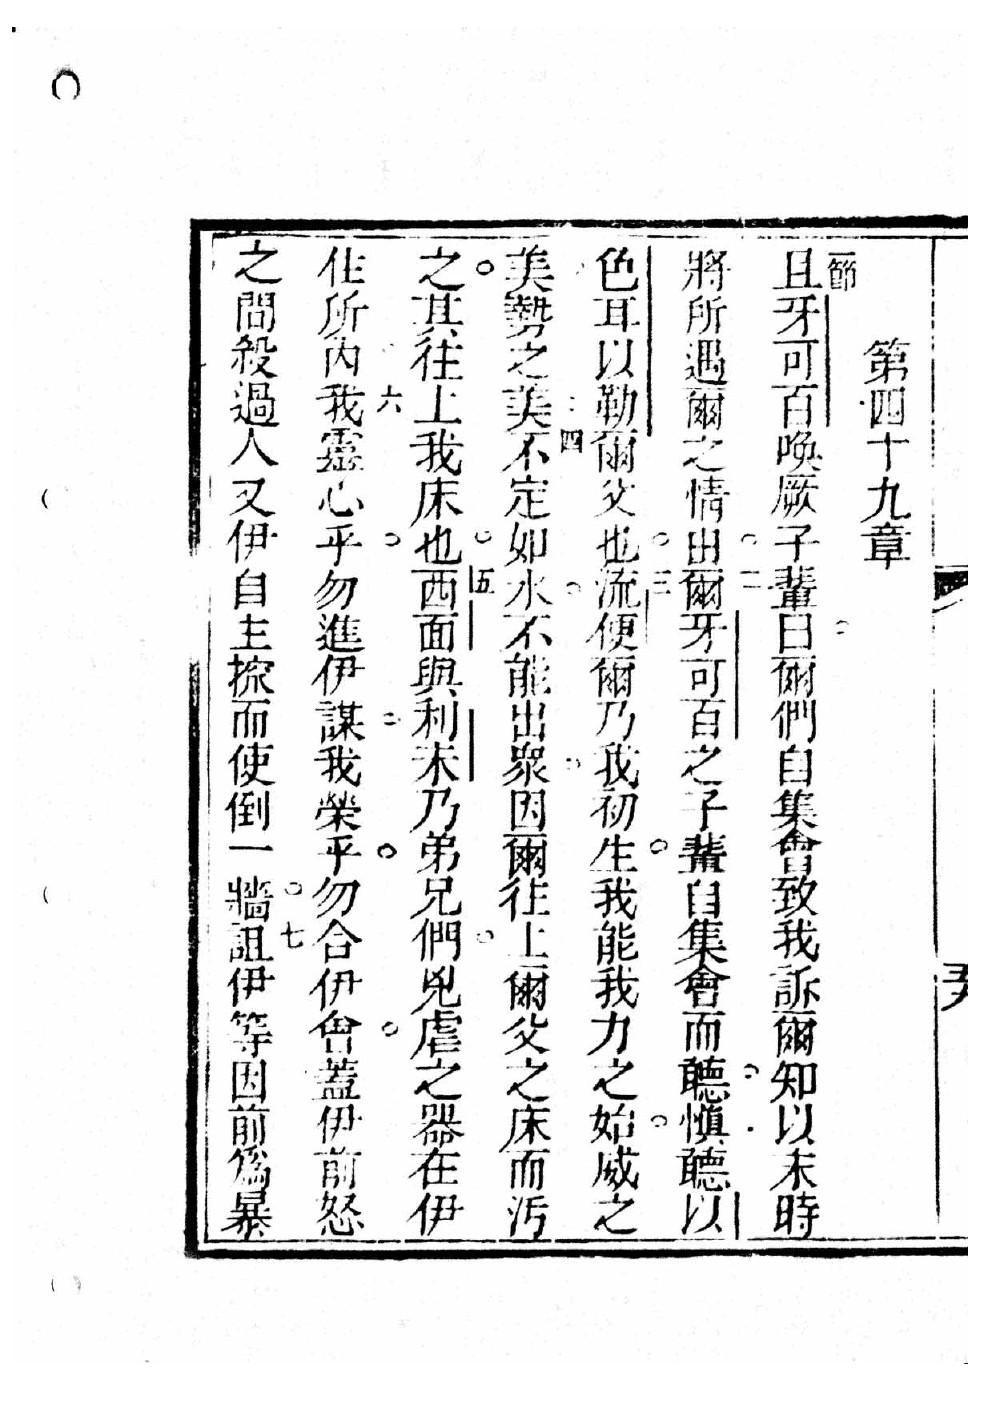 第四十九章
一節且牙可百喚厥子輩曰爾們自集會致我訴爾知以末時
將所遇爾之情出二爾牙可百之子輩自集會而聽慎聽以
色耳以勒爾父也三流便爾乃我初生我能我力之始威之
美勢之美四不定如水不能出衆因爾往上爾父之床而汚
之其往上我床也五西面與利未乃弟兄們兇虐之器在伊
住所內六我靈心乎勿進伊謀我榮乎勿合伊會蓋伊前怒
之間殺過人又伊自主掀而使倒一牆七詛伊等因前爲暴